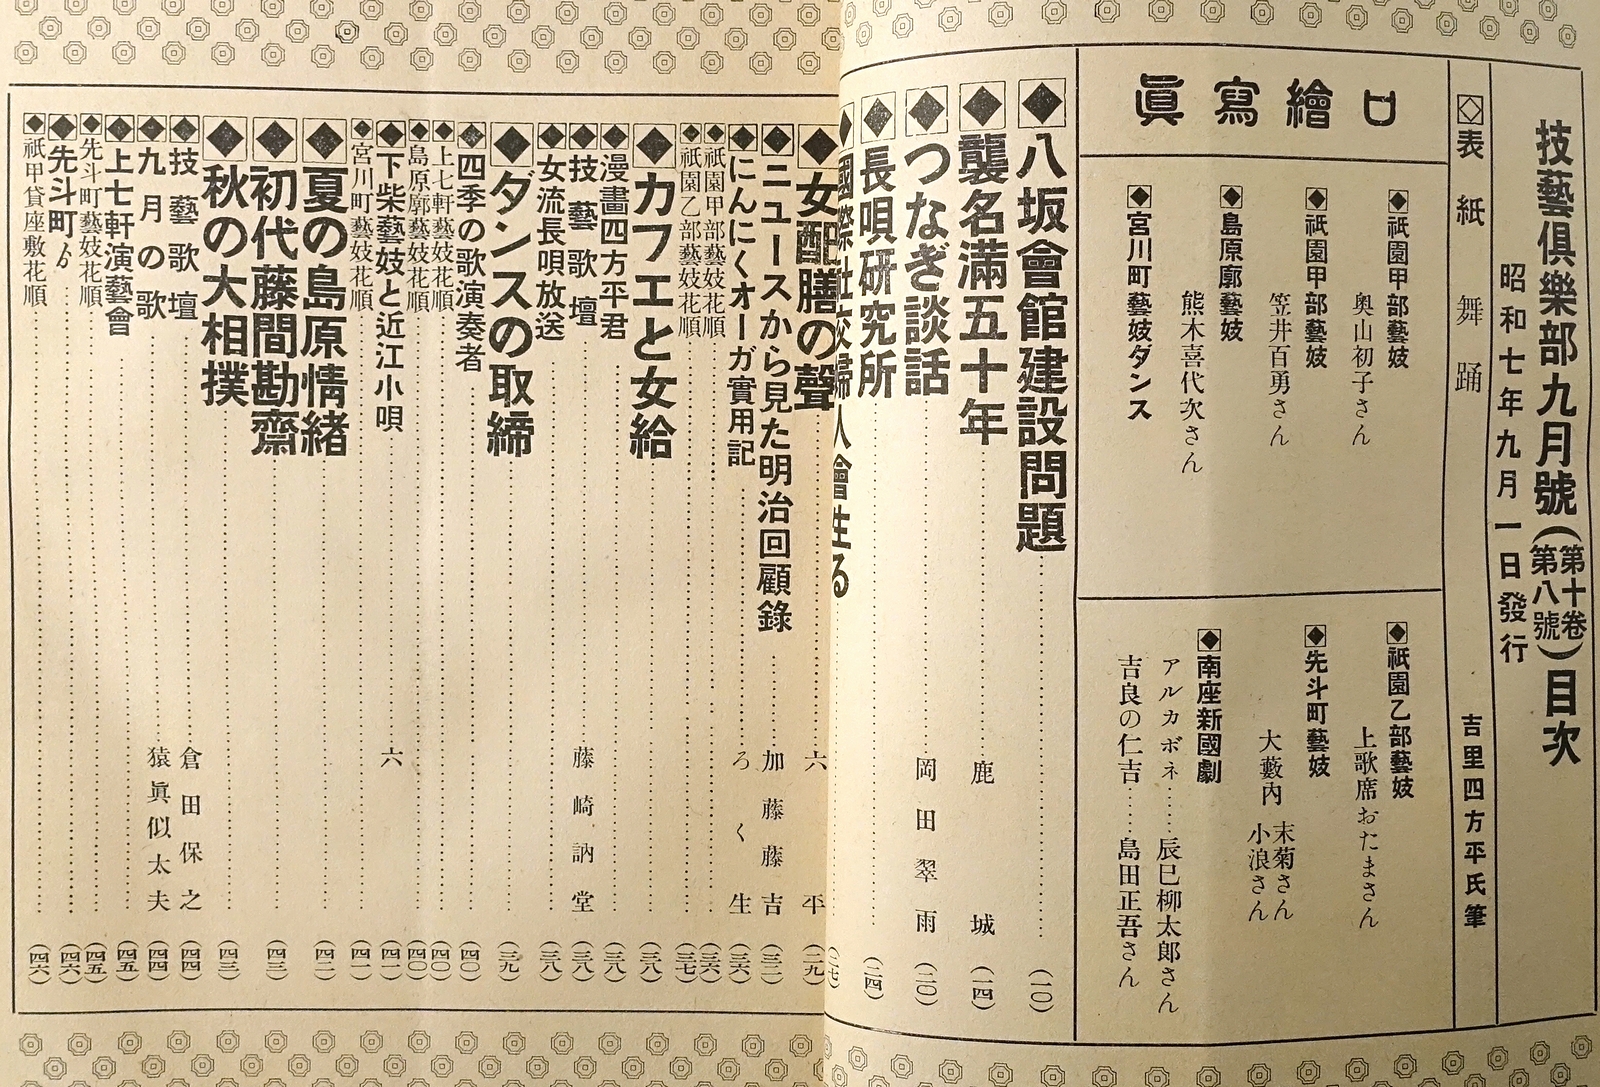 技藝倶樂部九月號(第十卷第八號)目次
昭和七年九月一日發行
表紙 舞踊 吉里四方平氏筆
口繪寫眞
祇園甲部藝妓
奥山初子さん
祇園甲部藝妓
笠井百勇さん
島原廓藝妓
熊木喜代次さん
宮川町藝妓ダンス
祇園乙部藝妓
上歌席おたまさん
先斗町藝妓
大藪内 末菊さん
小浪さん
南座新國劇
アルカボネ……辰巳柳太郎さん
吉良の仁吉……島田正吾さん
八坂會館建設問題……(一〇)
襲名滿五十年……鹿城(一四)
つなぎ談話……岡田翠雨(二〇)
長唄研究所……(二四)
國際社交婦人會生る……(二七)
女配膳の聲……六平(二九)
ニュースから見た明治回顧錄……加藤藤吉(三二)
にんにくオーガ實用記……ろく生(三六)
祇園甲部藝妓花順……(三六)
祇園乙部藝妓花順……(三七)
カフエと女給……(三八)
漫畫四方平君……(三八)
技藝歌壇……藤崎訥堂(三八)
女流長唄放送……(三八)
ダンスの取締……(三九)
四季の歌演奏者……(四〇)
上七軒藝妓花順……(四〇)
島原廓藝妓花順……(四〇)
下柴藝妓と近江小唄……六(四一)
宮川町藝妓花順……(四一)
夏の島原情緒……(四二)
初代藤間勘齋……(四三)
秋の大相撲……(四三)
技藝歌壇……倉田保之(四四)
九月の歌……猿眞似太夫(四四)
上七軒演藝會……(四五)
先斗町藝妓花順……(四五)
先斗町より……(四六)
祇甲貸座敷花順……(四六)